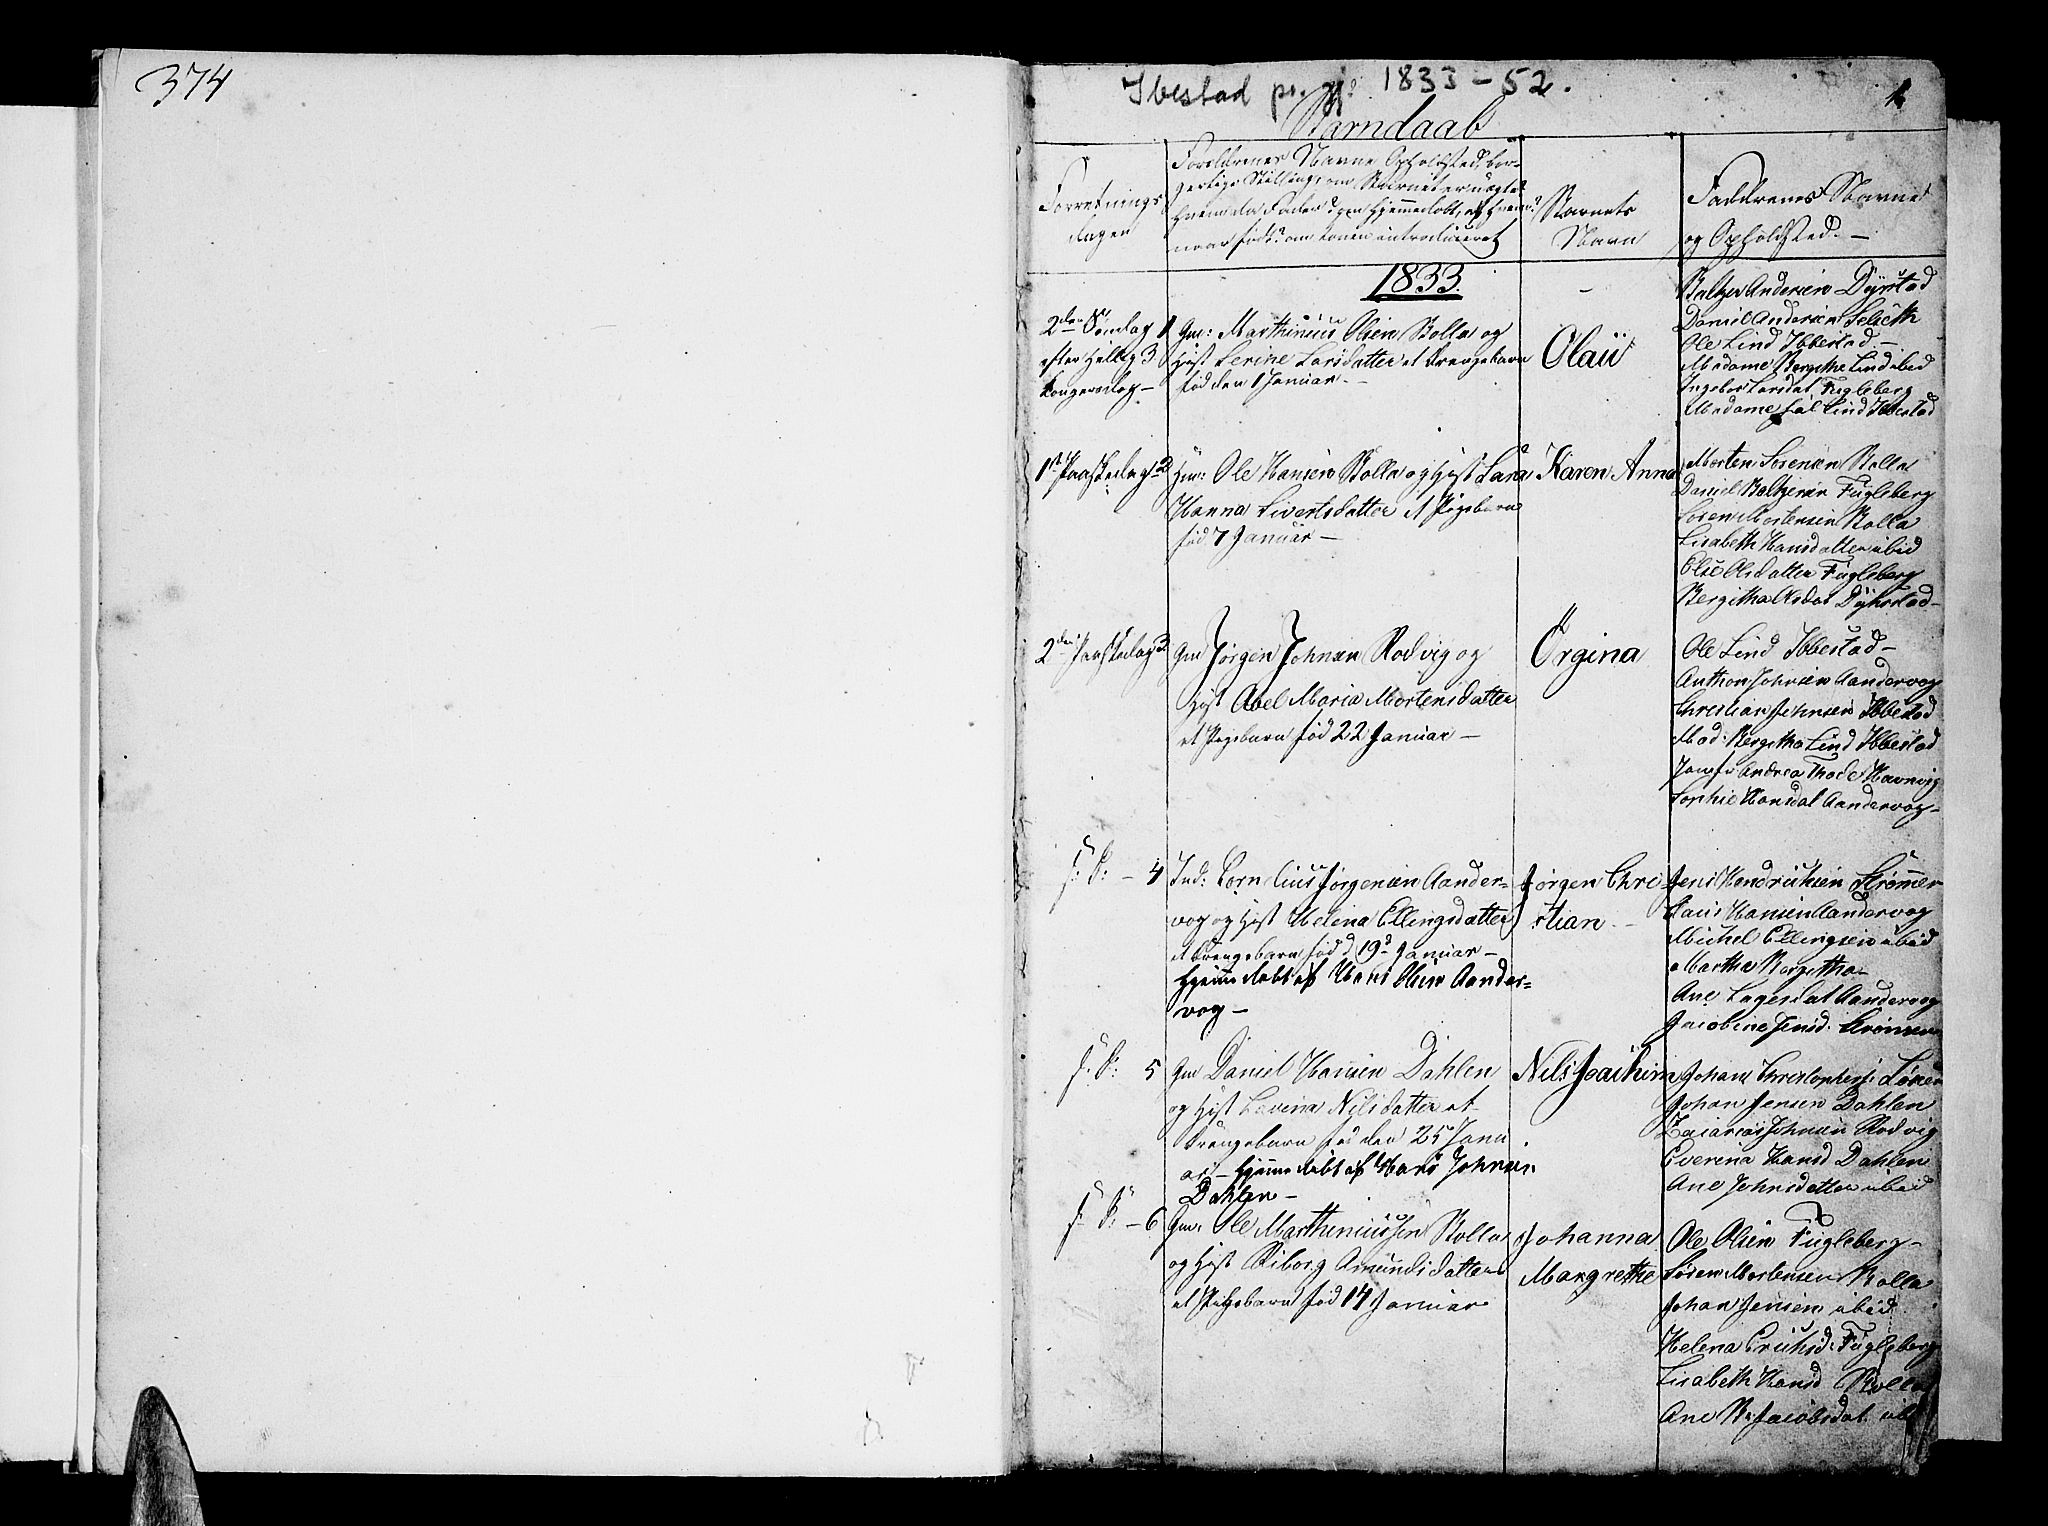 374
Ibestad pr. gj. 1833-52.
1
Barndaab
Forretnings
dagen
Forældrenes Navne Opholdsted, bor-
gerlige Stilling, om Barnet er uægte?
hvem da Fader? om hjemmedøbt, af hvem?
naar født? om konen introduceret
Barnets
Navn
Faddrenes Navne
og Opholdsted. —
1833.
2den Søndag 1
efter Hellig 3
Kongersdag —
Gm: Marthinus Olsen Rolla og
Hust Serine Larsdatter et Drengebarn
fød den 1 Januar —
Olaü
Baltzer Andersen Dyrstad
Daniel Andersen Selseth
Ole Lind Ibbestad —
Madame Bergithe Lind ibid
Ingebor Larsdat Fugleberg
Madame Lind Ibbestad
1st Paaskedag 2
Hm: Ole Hansen Rolla og Hust Sara
Hanna Sivertsdatter et Pigebarn
fød 7 Januar —
Karen Anna
Morten Sørensen Rolla
Daniel Baltzersen Fugleberg
Søren Mortensen Rolla
Lisabeth Hansdatter ibid
Else Olsdatter Fugleberg
Bergitha Olsdat Dyhrstad —
2den Paaskedag 3
Gm Jørgen Johnsen Rodvig og
Hust Abel Maria Mortensdatter
et Pigebarn fød 22 Januar —
Örgina
Ole Lind Ibbestad —
Anthon Johnsen Aandervog
Christian Johnsen Ibbestad
Mad: Bergitha Lind Ibbestad
Jomfr Andrea Thode Havnvig
Sophie Hansdat Aandervog —
S: D: — 4
Ind: Cornelius Jørgensen Aander-
vog og Hust Helena Ellingsdatter
et Drengebarn fød d 19d Januar —
Hjemmedøbt af Hans Olsen Aander-
vog —
Jørgen Chri-
stian —
Jens Hendrichsen Strømen
Hansen Aandervog
Michel Ellingsen ibid
Martha Bergitha
Ane Lagesdat Aandervog
Jacobine Jensd: Strømen
S: D: 5
Gm Daniel Hansen Dahlen
og Hust Lavina Nilsdatter et
Drengebarn fød den 25 Janu
ar — Hjemmedøbt af Hans Johnsen
Dahlen —
Nils Joachim
Johan Christophers:
Johan Jensen Dahlen
Zacarias Johnsen Rodvig
Everina Hansd Dahlen
Ane Johnsdatter ibid
S: D: — 6
Gm: Ole Marthinussen Rolla
og Hust Riborg Amundsdatter
et Pigebarn fød 14 Januar
Johanna
Margrethe
Ole Olsen Fugleberg —
Søren Mortensen Rolla
Johan Jensen ibid
Helena Erichsd: Fugleberg
Lisabeth Hansd Rolla
Ane B: Jacobsdat ibid